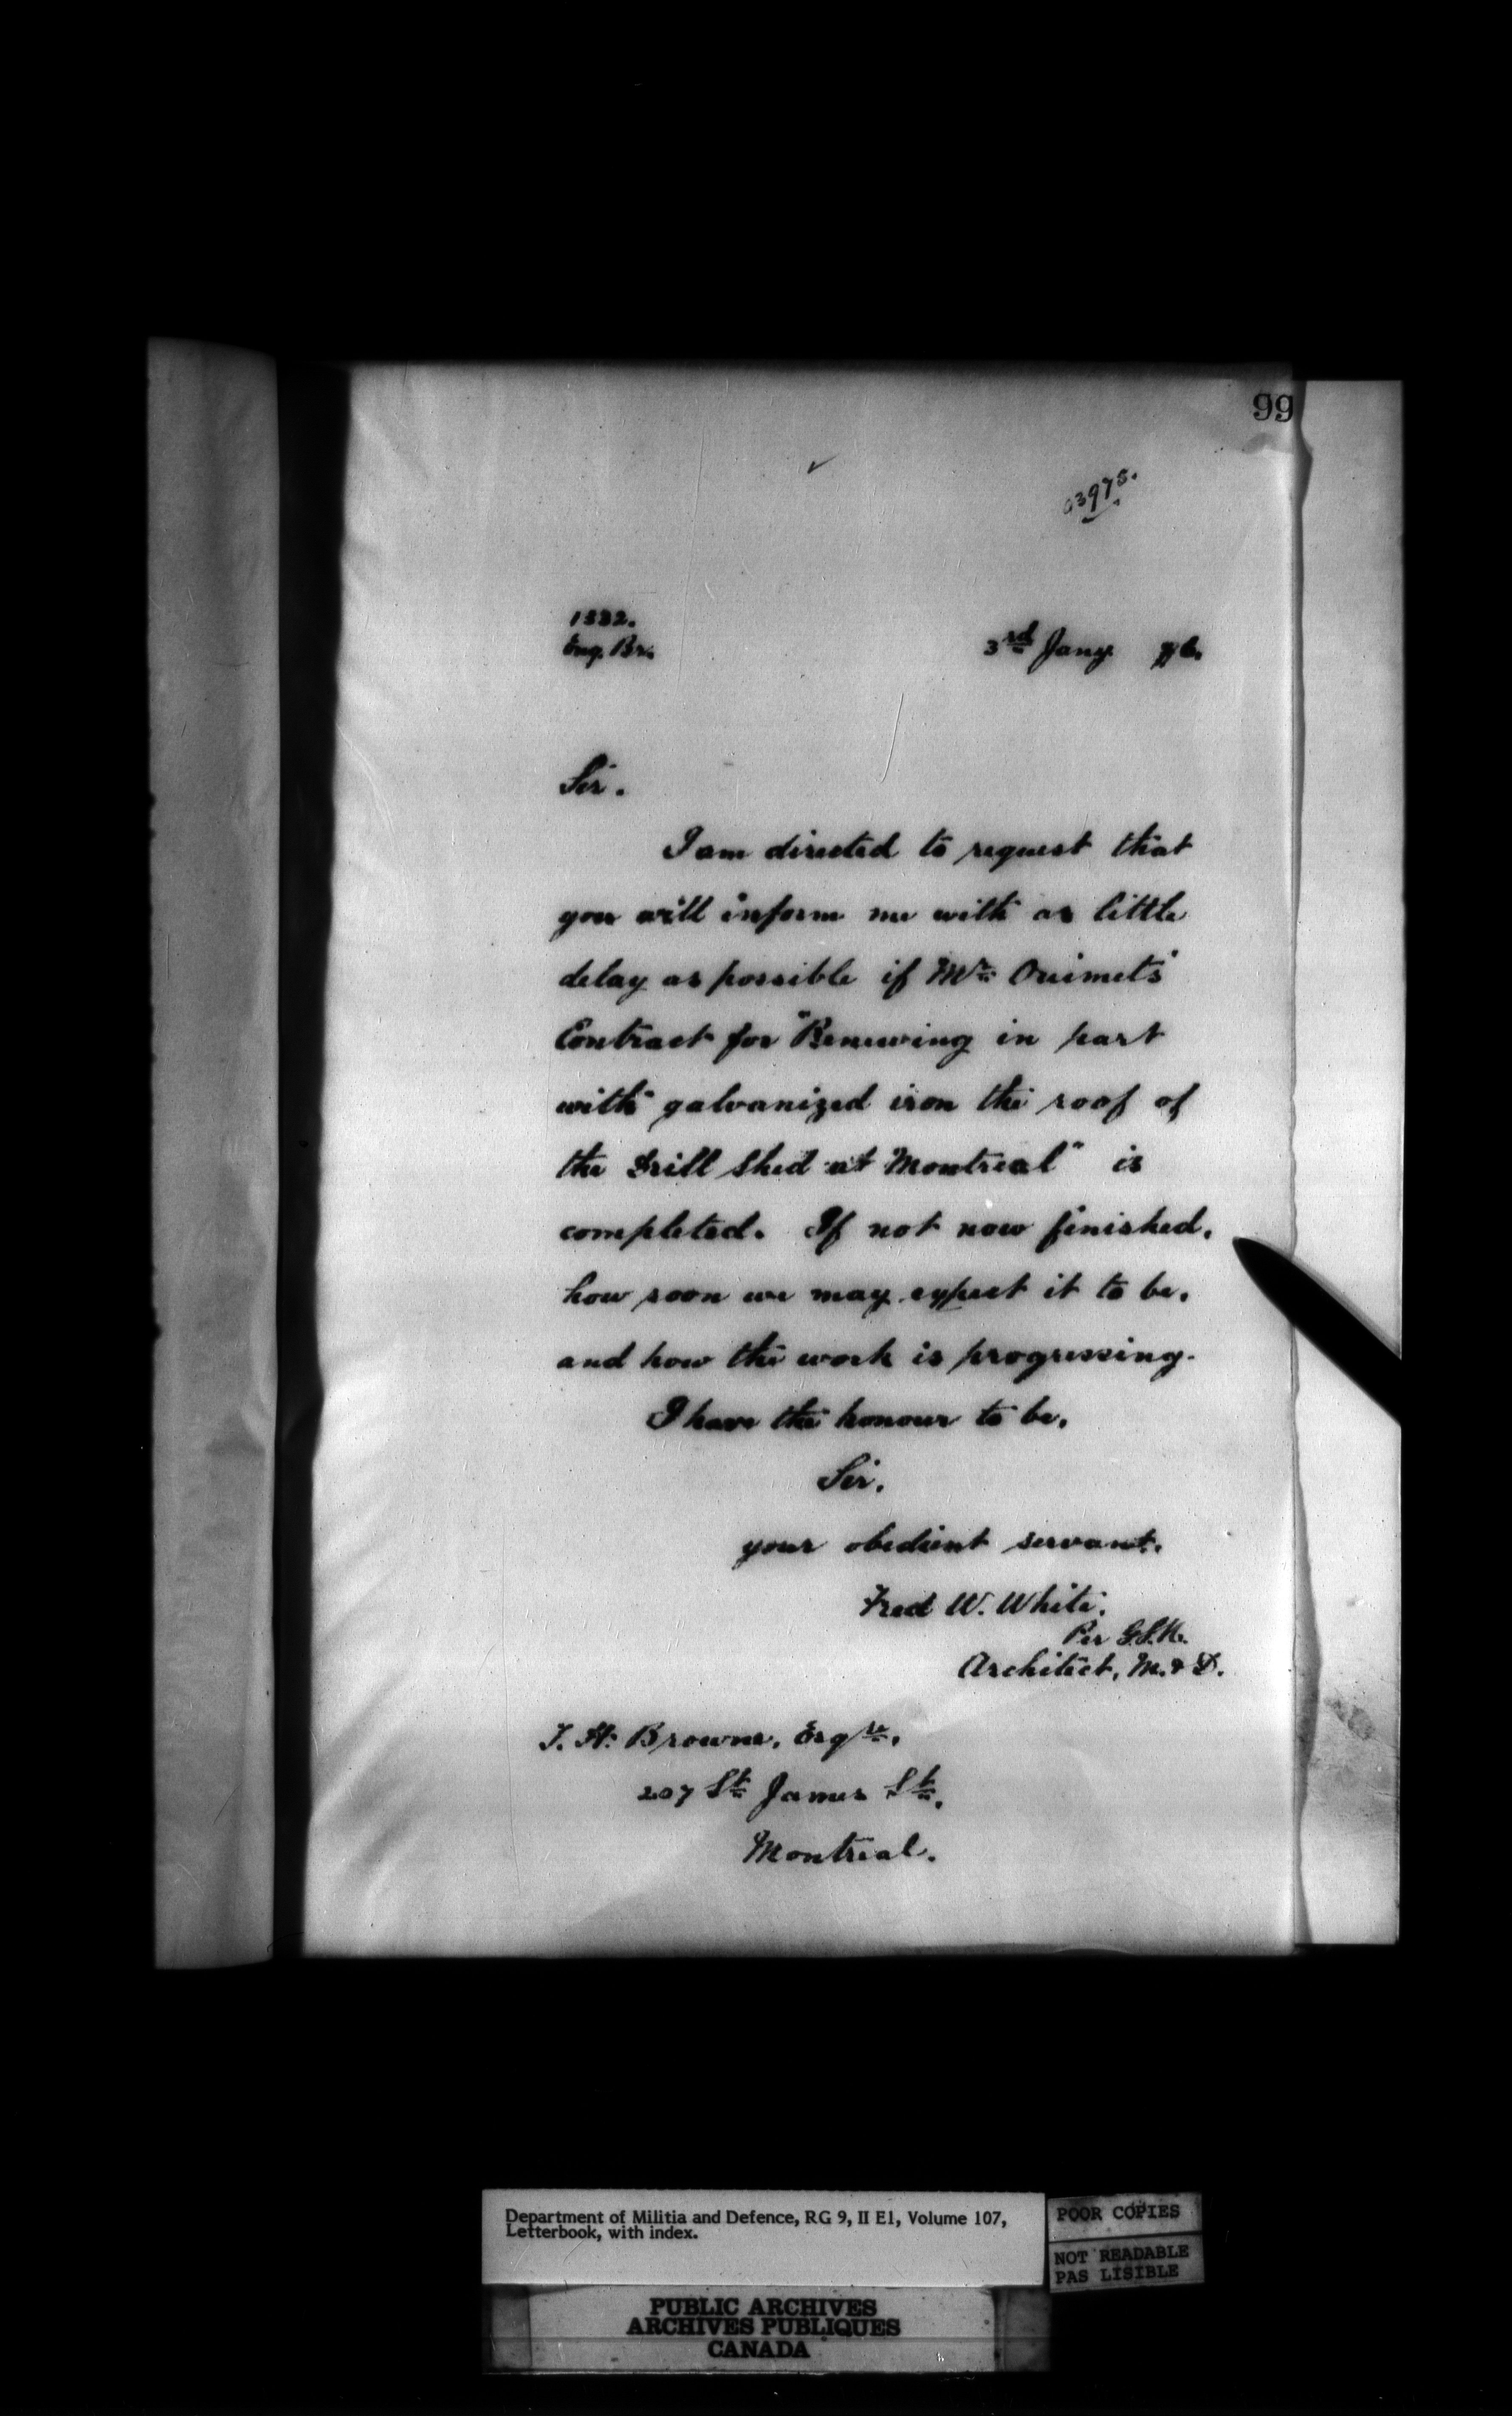 99
a3975.
1332.
Eng. Br.
3rd Jany 96.
Sir.
I am directed to request that
you will inform me with as little
delay as possible if Mr. Ouimet's
Contract for "Renewing in part
with galvanized iron the roof of
the Drill Shed at Montreal" is
completed. If not now finished,
how soon we may expect it to be,
and how the work is progressing.
I have the honour to be,
Sir,
your obedient servant,
Fred W. White.
Per
Architect, M. & D.
Browne, Esqre.
207 St James St.
Montreal.
Department of Militia and Defence, RG 9, II E1, Volume 107,
Letterbook, with index.
POOR COPIES
NOT READABLE
PAS LISIBLE
PUBLIC ARCHIVES
ARCHIVES PUBLIQUES
CANADA